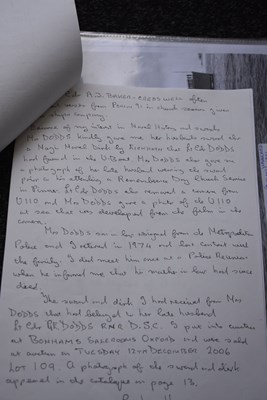 Lt Cdr R.J. BAKER-CRESSWELL after
because of my interest in Naval History and events
Mrs DODDS kindly gave me her husband's sword and
a Naval Dirk by EICKHORN that Lt Cdr DODDS
had found in the U-Boat Mrs DODDS also gave me
a photograph of her late husband wearing the sword
prior to his attending a Remembrance Day Church Service
in Pinner. Lt Cdr DODDS also removed a camera from
U110 and Mrs DODDS gave a photo of the U110
at sea that was developed from the film in the
camera.
Mrs DODDS son in law resigned from the Metropolitan
Police and I retired in 1974 and lost contact with
the family. I did meet him once at a Police Reunion
when he informed me that his mother in law had since
died.
The sword and dirk I had received from Mrs
DODDS that had belonged to her late husband
Lt Cdr DODDS R.N.R D.S.C. I put into auction
at BONHAMS SALEROOMS OXFORD and was sold
at auction on TUESDAY 12TH DECEMBER 2006
LOT 109. A photograph of the sword and dirk
appeared in the catalogue on page 13.